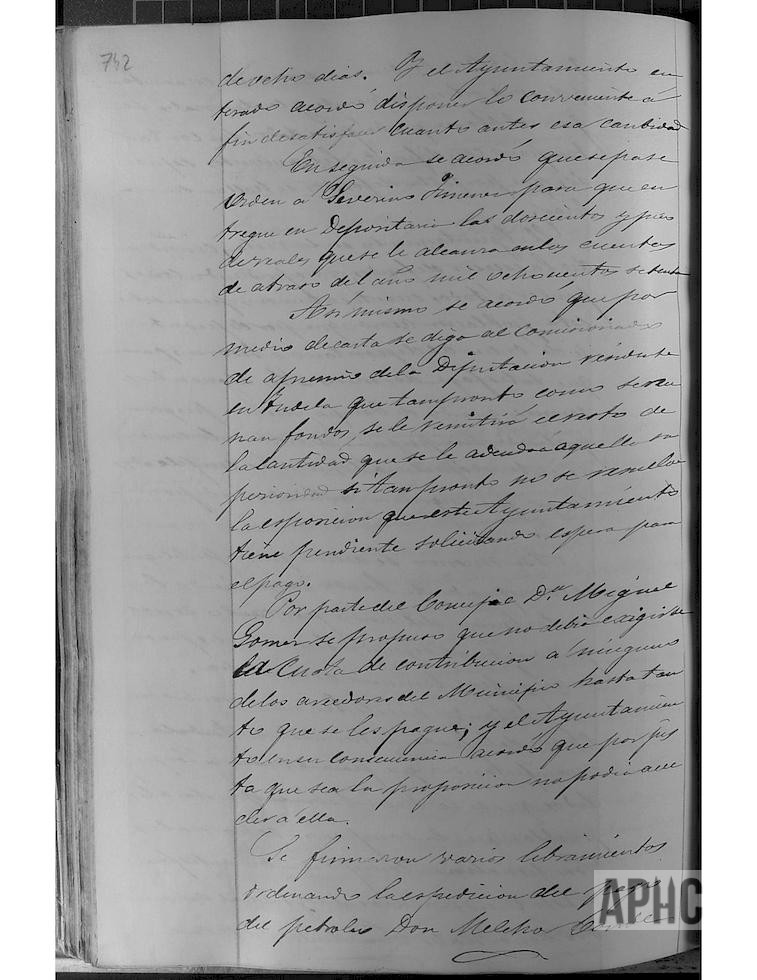 742
de ocho dias. Y el Ayuntamiento en
terado acordó disponer lo conveniente á
fin de satisfacer cuanto antes esa cantidad
En seguida se acordó que se pase
orden a Severino Jimenez para que en
tregue en Depositaria las doscientos y pico
de reales que se le alcanza en las cuentas
de atraso del año mil ochocientos setenta
Asi mismo se acordó que por
medio de carta se diga al Comisionado
de apremio de la Diputacion residente
en Tudela que tan pronto como se reu
nan fondos, se le remitirá el resto de
la cantidad que se le adeuda á aquella su
perioridad si tan pronto no se resuelve
la esposicion que este Ayuntamiento
tiene pendiente solicitando espera para
el pago.
Por parte del Concejal Dn Miguel
Gomez se propuso que no debia exigirse
la Cuota de contribucion á ninguno
de los acredores del Municipio hasta tan
to que se les pague; y el Ayuntamien
to en su consecuencia acordó que por jus
ta que sea la proposicion no podia acce
der á ella.
Se firmaron varios libramientos
ordenando la espedicion del pago
del petroleo Don Melchor
APHC